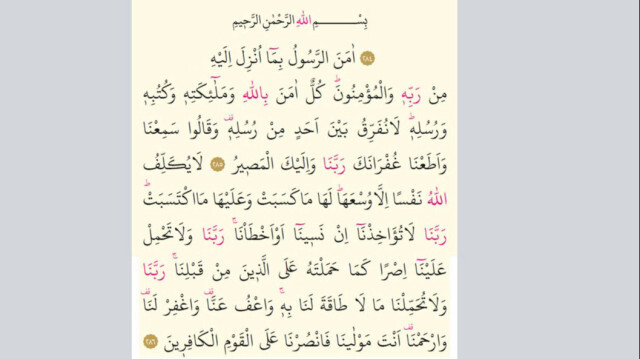 بِسْــــــــمِ اللهِ الرَّحْمٰنِ الرَّحِيمِ
﴿٢٨٤﴾ اٰمَنَ الرَّسُولُ بِمَٓا اُنْزِلَ اِلَيْهِ
مِنْ رَبِّه۪ وَالْمُؤْمِنُونَۜ كُلٌّ اٰمَنَ بِاللهِ وَمَلٰٓئِكَتِه۪ وَكُتُبِه۪
وَرُسُلِه۪ۜ لَا نُفَرِّقُ بَيْنَ اَحَدٍ مِنْ رُسُلِه۪ۚ وَقَالُوا سَمِعْنَا
وَاَطَعْنَا غُفْرَانَكَ رَبَّنَا وَاِلَيْكَ الْمَص۪يرُ ﴿٢٨٥﴾ لَا يُكَلِّفُ
اللهُ نَفْسًا اِلَّا وُسْعَهَاۜ لَهَا مَا كَسَبَتْ وَعَلَيْهَا مَا اكْتَسَبَتْۜ
رَبَّنَا لَا تُؤَاخِذْنَٓا اِنْ نَس۪ينَٓا اَوْ اَخْطَأْنَاۚ رَبَّنَا وَلَا تَحْمِلْ
عَلَيْنَٓا اِصْرًا كَمَا حَمَلْتَهُ عَلَى الَّذ۪ينَ مِنْ قَبْلِنَاۚ رَبَّنَا
وَلَا تُحَمِّلْنَا مَا لَا طَاقَةَ لَنَا بِه۪ۚ وَاعْفُ عَنَّا۠ وَاغْفِرْ لَنَا۠
وَارْحَمْنَا۠ اَنْتَ مَوْلٰينَا فَانْصُرْنَا عَلَى الْقَوْمِ الْكَافِر۪ينَ ﴿٢٨٦﴾